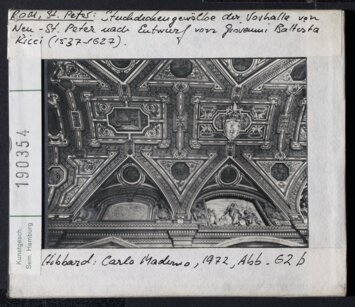 Rom, St. Peter: Stuckdeckengewölbe der Vorhalle von
Neu-St. Peter nach Entwurf von Giovanni Battista
Ricci (1537-1627).
190354
Kunstgesch.
Sem. Hamburg
Hibbard: Carlo Maderno, 1972, Abb. 62 b